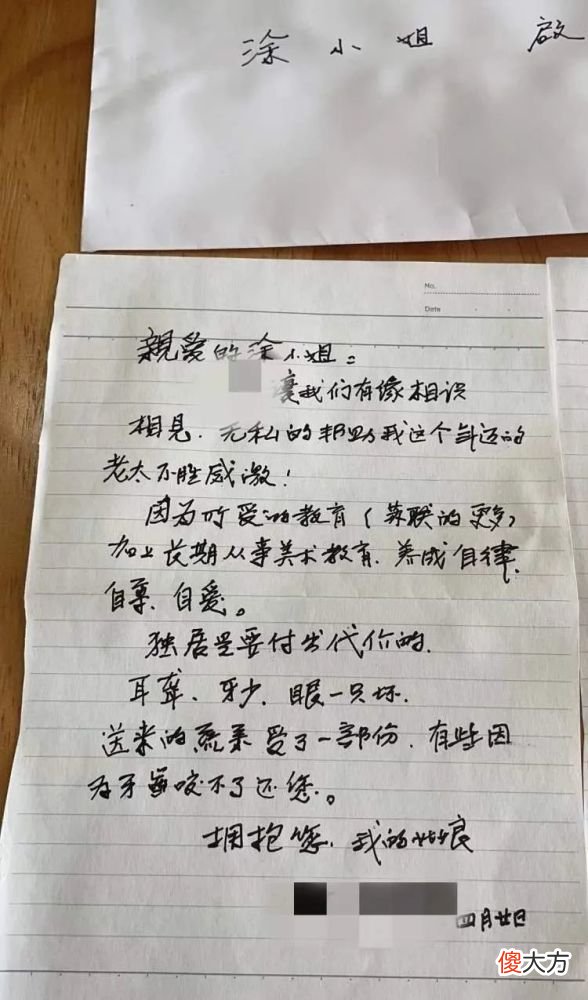 涂小姐 启
No.
Date
親爱的涂小姐：
让我们有缘相识
相见．无私的帮助我这个年迈的
老太不胜感激！
因为所受的教育（苏联的更多）
加上长期从事美术教育．养成自律．
自尊．自爱。
独居是要付出代价的．
耳聋．牙少．眼一只坏．
送来的蔬菜受了一部份．有些因
为牙 咬不了还您。
拥抱您．我的姑娘
四月廿日
傻大方